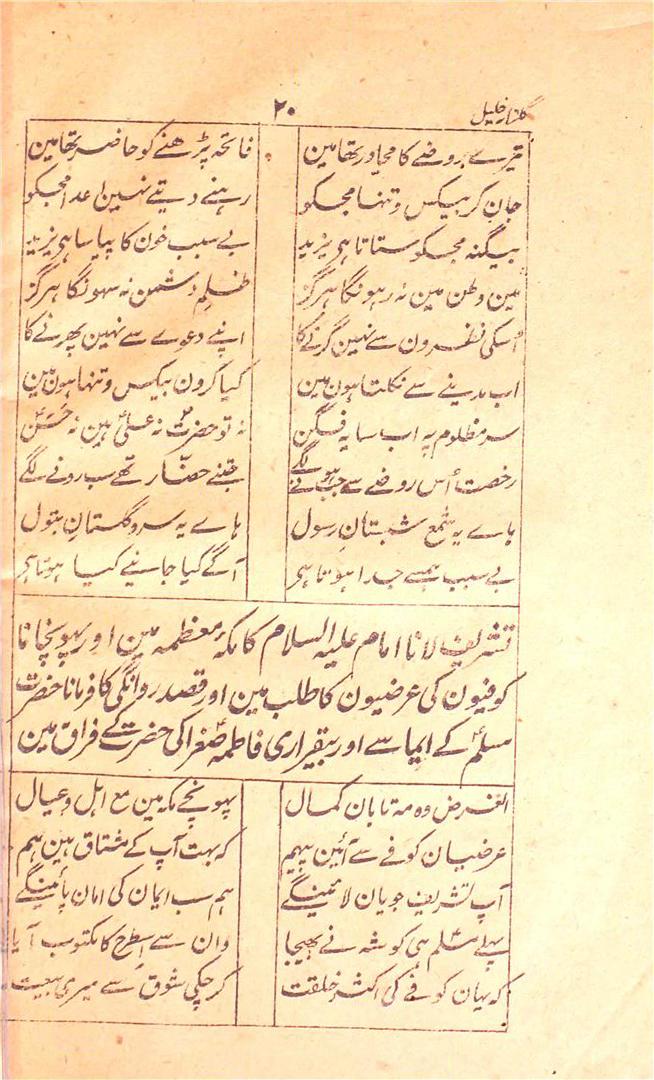 گلزار خلیل ۲۰
تیرے روضے کا مجاور تھا مین فاتحہ پڑھنے کو حاضر تھا مین
جان کر بیکس و تنہا مجکو رہنے دیتے نہین اعدا مجکو
بیگنہ مجکو ستاتا ہی یزید بے سبب خون کا پیاسا ہی یزید
مین وطن مین نہ رہونگا ہرگز ظلم دشمن نہ سہونگا ہرگز
اُسکی نظرون سے نہین گرنے کا اپنے دعوے سے نہین پھرنے کا
اب مدینے سے نکلتا ہون مین کیا کرون بیکس و تنہا ہون مین
سر مظلوم پہ اب سایہ فگن نہ تو حضرت نہ علیؑ ہین نہ حسنؑ
رخصت اُس روضے سے جب ہونے لگے جتنے حضار تھے سب رونے لگے
ہاے یہ شمع شبستان رسول ہاے یہ سرو گلستان بتول
بے سبب ہمسے جدا ہوتا ہی آگے کیا جانیے کیا ہوتا ہی
تشریف لانا امام علیہ السلام کا مکۂ معظمہ مین اور پہونچانا
کوفیون کی عرضیون کا طلب مین اور قصد روانگی کا فرمانا حضرت
مسلمؑ کے ایما سے اور بیقراری فاطمہ صغراؑ کی حضرت کے فراق مین
الغرض وہ مہ تابان کمال پہونچے مکہ مین مع اہل و عیال
عرضیان کوفے سے آئین پیہم کہ بہت آپ کے مشتاق ہین ہم
آپ تشریف جو یان لائینگے ہم سب ایمان کی امان پائینگے
پہلے مسلمؑ ہی کو شہ نے بھیجا وان سے اسطرح کا مکتوب آیا
کہ یہان کوفے کی اکثر خلقت کر چکی شوق سے میری بیعت